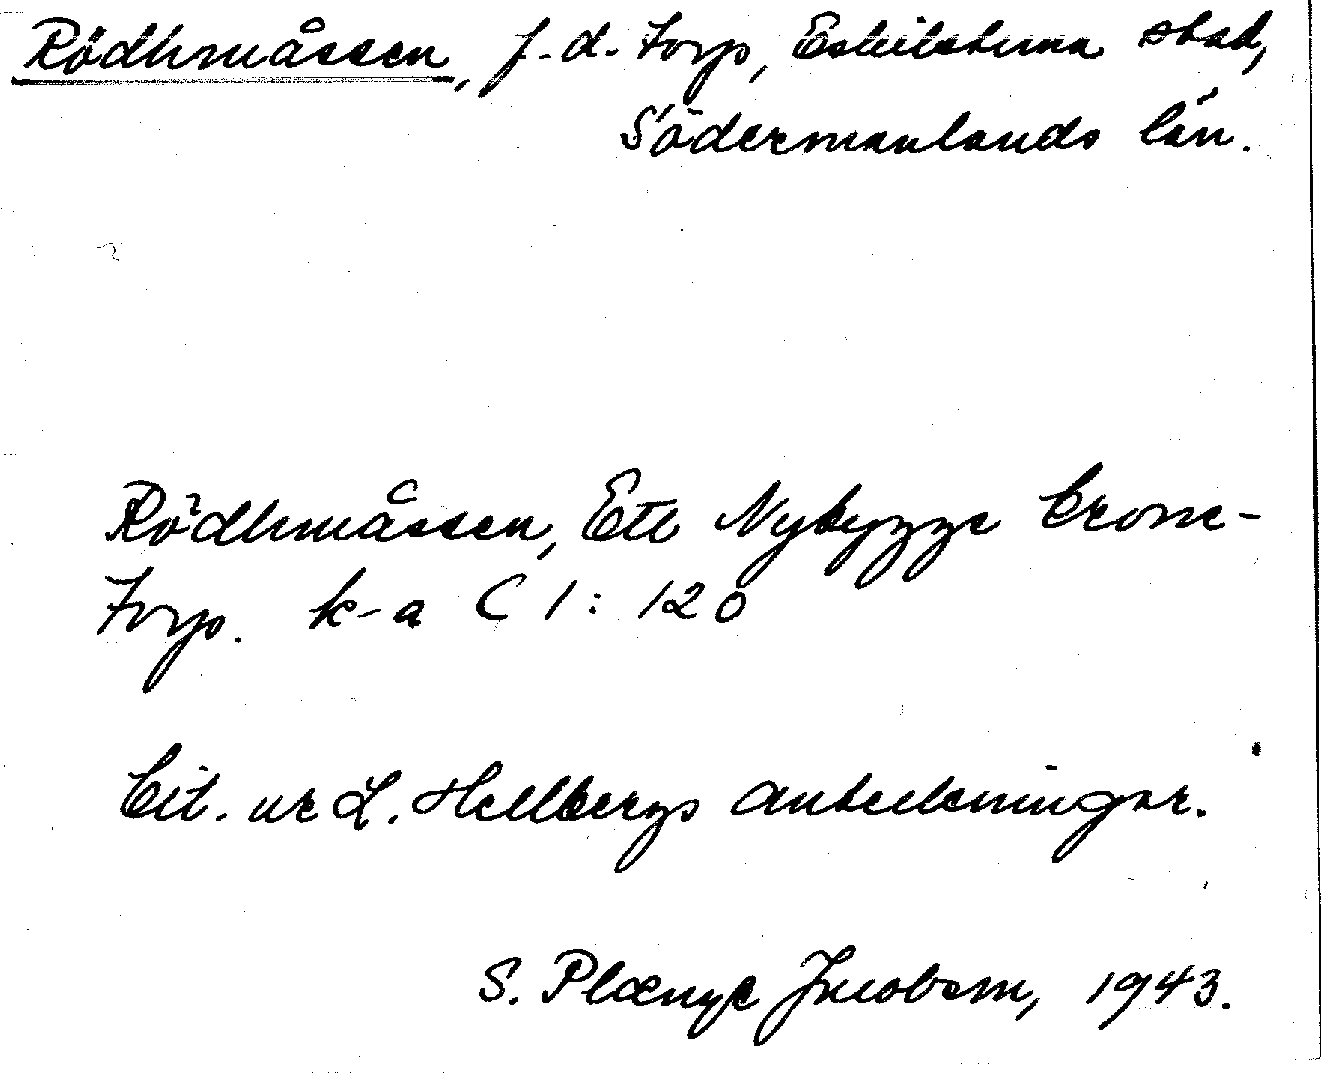 Rödhmåssen, f.d. torp, Eskilstuna stad,
Södermanlands län.
Rödhmåssen, Ett Nybygge Crone-
Torp. k-a C 1:120
Cit. ur L. Hellbergs anteckningar.
S. Jacobson, 1943.